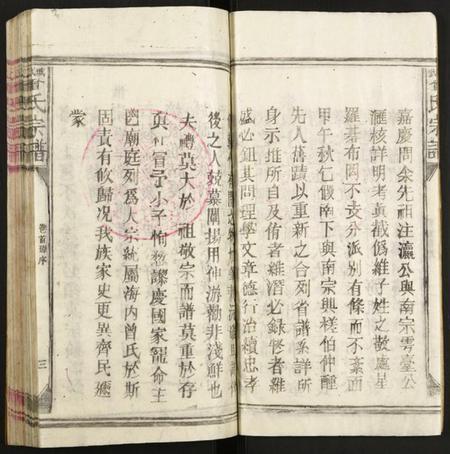 嘉慶間余先祖注瀛公與南宗雲臺公
滙核詳明考真截僞維子姓之散處星
羅碁布罔不支分派別有條而不紊而
甲午秋仁俶南下與南宗興槎伯仲踵
先人舊蹟以重新之合列省譜系詳所
身示推所自及侑者維潛必錄修者雖
感必鈕其問理學文章德行治績忠孝
後之人兢慕闡揚用伸游勸非淺鮮也
夫禮莫大於祖敬宗而譜莫重於存
與
予小子恂
慶國家寵命主
鬯廟庭列爲人宗統屬海内曾氏於斯
固責有攸歸况我族家史更異齊民遞
蒙
曾氏宗譜
卷首舊序
三
曾氏宗譜